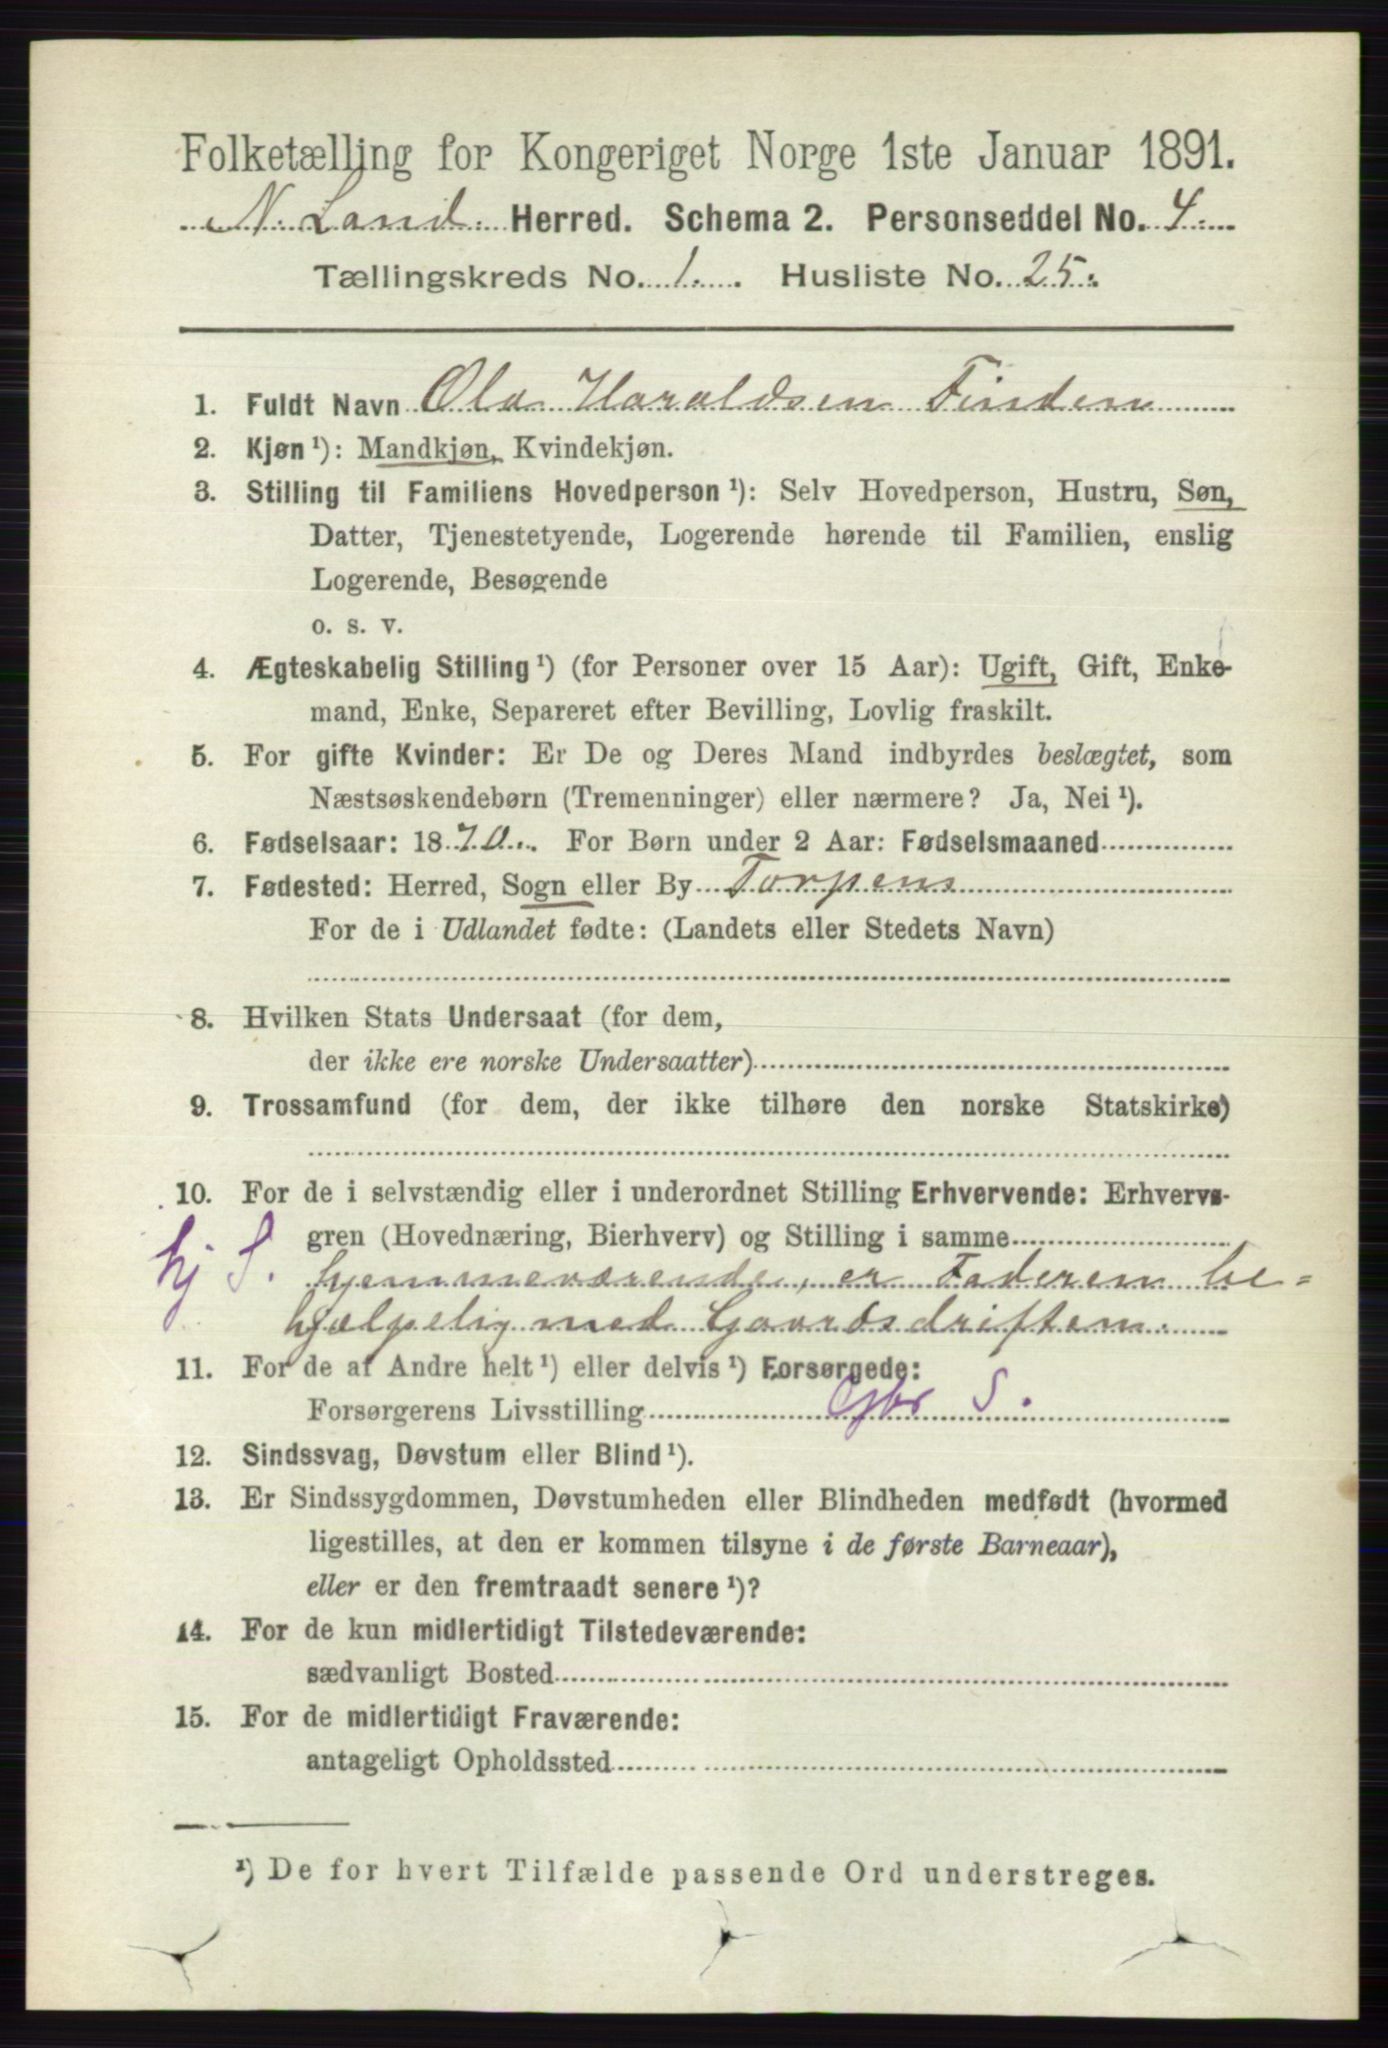 Folketælling for Kongeriget Norge 1ste Januar 1891.
N. Land. Herred. Schema 2. Personseddel No. 4.
Tællingskreds No. 1. Husliste No. 25.
1. Fuldt Navn Ola Haraldsen Finden
2. Kjøn ¹): Mandkjøn, Kvindekjøn.
3. Stilling til Familiens Hovedperson ¹): Selv Hovedperson, Hustru, Søn,
Datter, Tjenestetyende, Logerende hørende til Familien, enslig
Logerende, Besøgende
o. s. v.
4. Ægteskabelig Stilling ¹) (for Personer over 15 Aar): Ugift, Gift, Enke-
mand, Enke, Separeret efter Bevilling, Lovlig fraskilt.
5. For gifte Kvinder: Er De og Deres Mand indbyrdes beslægtet, som
Næstsøskendebørn (Tremenninger) eller nærmere? Ja, Nei ¹).
6. Fødselsaar: 1870. For Børn under 2 Aar: Fødselsmaaned
7. Fødested: Herred, Sogn eller By Torpens
For de i Udlandet fødte: (Landets eller Stedets Navn)
8. Hvilken Stats Undersaat (for dem,
der ikke ere norske Undersaatter)
9. Trossamfund (for dem, der ikke tilhøre den norske Statskirke)
10. For de i selvstændig eller i underordnet Stilling Erhvervende: Erhvervs-
gren (Hovednæring, Bierhverv) og Stilling i samme
hj S. hjemmeværende, er Faderen be-
hjælpelig med Gaardsdriften.
11. For de af Andre helt ¹) eller delvis ¹) Forsørgede:
Forsørgerens Livsstilling Gbr S.
12. Sindssvag, Døvstum eller Blind ¹).
13. Er Sindssygdommen, Døvstumheden eller Blindheden medfødt (hvormed
ligestilles, at den er kommen tilsyne i de første Barneaar),
eller er den fremtraadt senere ¹)?
14. For de kun midlertidigt Tilstedeværende:
sædvanligt Bosted
15. For de midlertidigt Fraværende:
antageligt Opholdssted
¹) De for hvert Tilfælde passende Ord understreges.